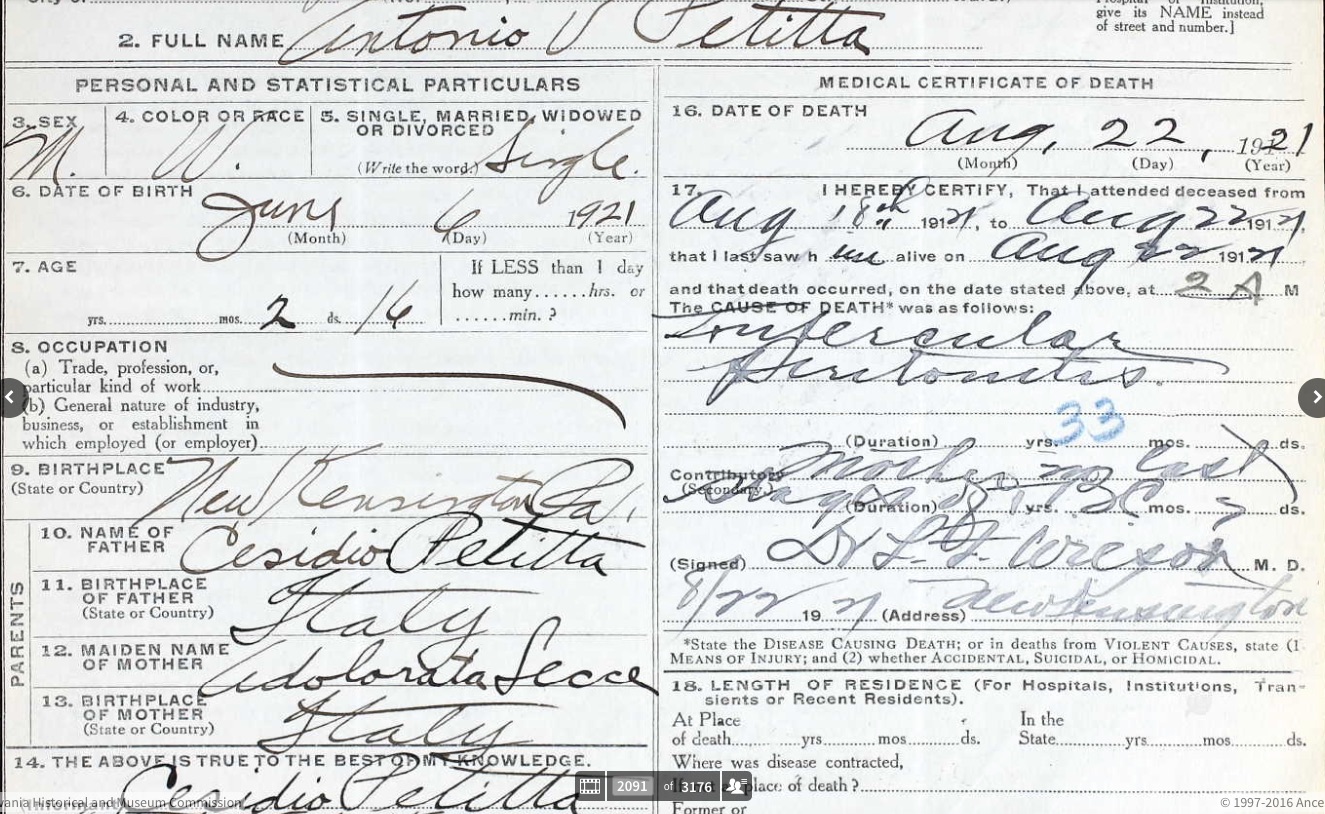 Hospital or Institution,
give its NAME instead
of street and number.]
2. FULL NAME Antonio V Petitta
PERSONAL AND STATISTICAL PARTICULARS
3. SEX
M.
4. COLOR OR RACE
W.
5. SINGLE, MARRIED, WIDOWED
OR DIVORCED
(Write the word.) Single.
6. DATE OF BIRTH
June 6 1921
(Month) (Day) (Year)
7. AGE
yrs. mos. 2 ds. 16
If LESS than 1 day
how many......hrs. or
......min. ?
8. OCCUPATION
(a) Trade, profession, or,
particular kind of work
(b) General nature of industry,
business, or establishment in
which employed (or employer)
9. BIRTHPLACE
(State or Country) New Kensington Pa.
PARENTS
10. NAME OF
FATHER Cesidio Petitta
11. BIRTHPLACE
OF FATHER
(State or Country) Italy
12. MAIDEN NAME
OF MOTHER Adolorata Secce
13. BIRTHPLACE
OF MOTHER
(State or Country) Italy
14. THE ABOVE IS TRUE TO THE BEST OF MY KNOWLEDGE.
(Informant) Cesidio Petitta
MEDICAL CERTIFICATE OF DEATH
16. DATE OF DEATH
Aug, 22, 1921
(Month) (Day) (Year)
17. I HEREBY CERTIFY, That I attended deceased from
Aug 18th 1921, to Aug 22 1921,
that I last saw him alive on Aug 22 1921
and that death occurred, on the date stated above, at 2 A M
The CAUSE OF DEATH* was as follows:
Tubercular
Peritonitis.
33
(Duration) yrs. mos. ds.
Contributory Mother in last
(Secondary) stages of TBC
(Duration) yrs. mos. ds.
(Signed) Dr L. F. M. D.
8/22 1921 (Address) New Kensington
*State the DISEASE CAUSING DEATH; or in deaths from VIOLENT CAUSES, state (1
MEANS OF INJURY; and (2) whether ACCIDENTAL, SUICIDAL, or HOMICIDAL.
18. LENGTH OF RESIDENCE (For Hospitals, Institutions, Tran-
sients or Recent Residents).
At Place In the
of death yrs. mos. ds. State yrs. mos. ds.
Where was disease contracted,
place of death ?
Former or
2091 of 3176
vania Historical and Museum Commission
© 1997-2016 Ance